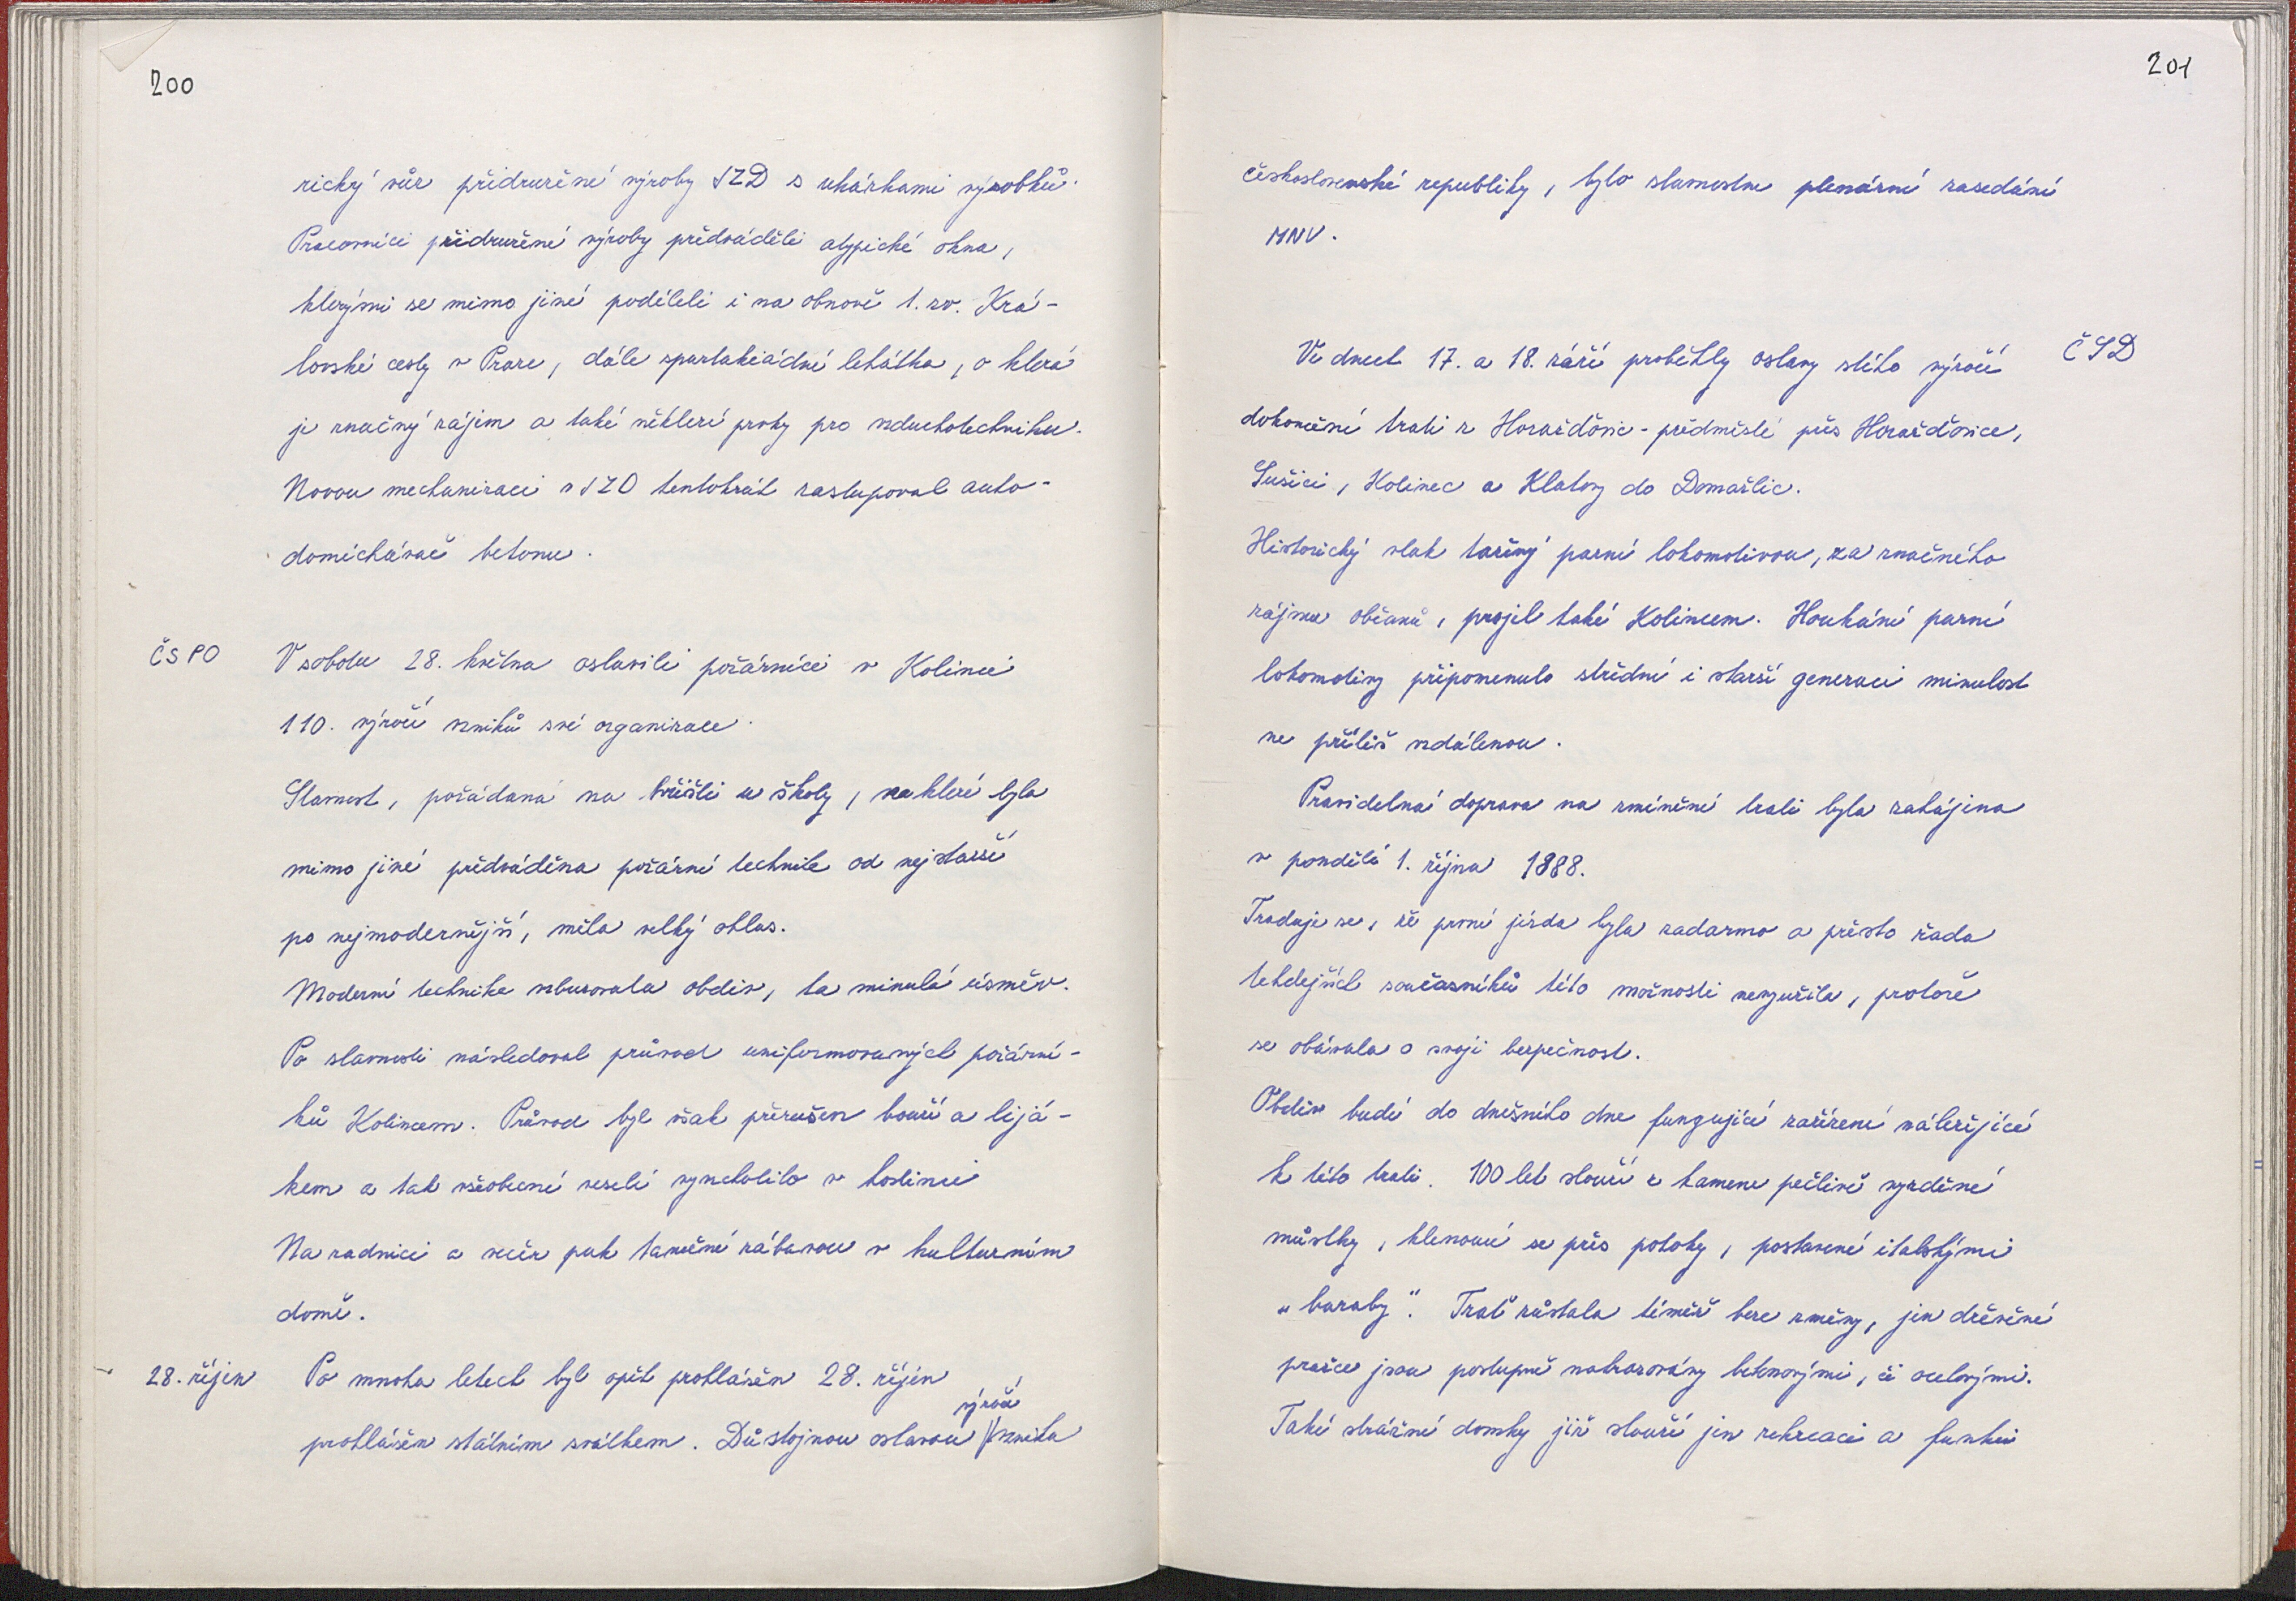 200
rický vůz přidružené výroby JZD s ukázkami výrobků.
Pracovníci přidružené výroby předváděli atypické okna,
kterými se mimo jiné podíleli i na obnově 1. zv. Krá-
lovské cesty v Praze, dále spartakiádní lehátka, o která
je značný zájem a také některé prvky pro vzduchotechniku.
Novou mechanizaci v JZD tentokrát zastupoval auto-
domíchávač betonu.
ČSPO
V sobotu 28. května oslavili požárníci v Kolinci
110. výročí vzniků své organizace.
Slavnost, pořádaná na hřišti u školy, na které byla
mimo jiné předváděna požární technika od nejstarší
po nejmodernější, měla velký ohlas.
Moderní technika vzbuzovala obdiv, ta minulá úsměv.
Po slavnosti následoval průvod uniformovaných požární-
ků Kolincem. Průvod byl však přerušen bouří a lijá-
kem a tak všeobecné veselí vyvrcholilo v hostinci
Na radnici a večer pak taneční zábavou v kulturním
domě.
28. říjen
Po mnoha letech byl opět prohlášěn 28. říjen
výročí
prohlášěn státním svátkem. Důstojnou oslavou vzniku
201
československé republiky, bylo slavnostne plenární zasedání
MNV.
ČSD
Ve dnech 17. a 18. září proběhly oslavy stého výročí
dokončení trati z Horažďovic-předměstí přes Horažďovice,
Sušici, Kolinec a Klatovy do Domažlic.
Historický vlak tažený parní lokomotivou, za značného
zájmu občanů, projel také Kolincem. Houkání parní
lokomotivy připomenulo střední i starší generaci minulost
ne příliš vzdálenou.
Pravidelná doprava na zmíněné trati byla zahájena
v pondělí 1. října 1888.
Traduje se, že první jízda byla zadarmo a přesto řada
tehdejších současníků této možnosti nevyužila, protože
se obávala o svoji bezpečnost.
Obdiv budí do dnešního dne fungující zařízení náležející
k této trati. 100 let slouží z kamene pečlivě vyzděné
můstky, klenoucí se přes potoky, postavené italskými
„baraby". Trať zůstala téměř beze změny, jen dřevěné
pražce jsou postupně nahrazovány betonovými, či ocelovými.
Také strážní domky již slouží jen rekreaci a funkci